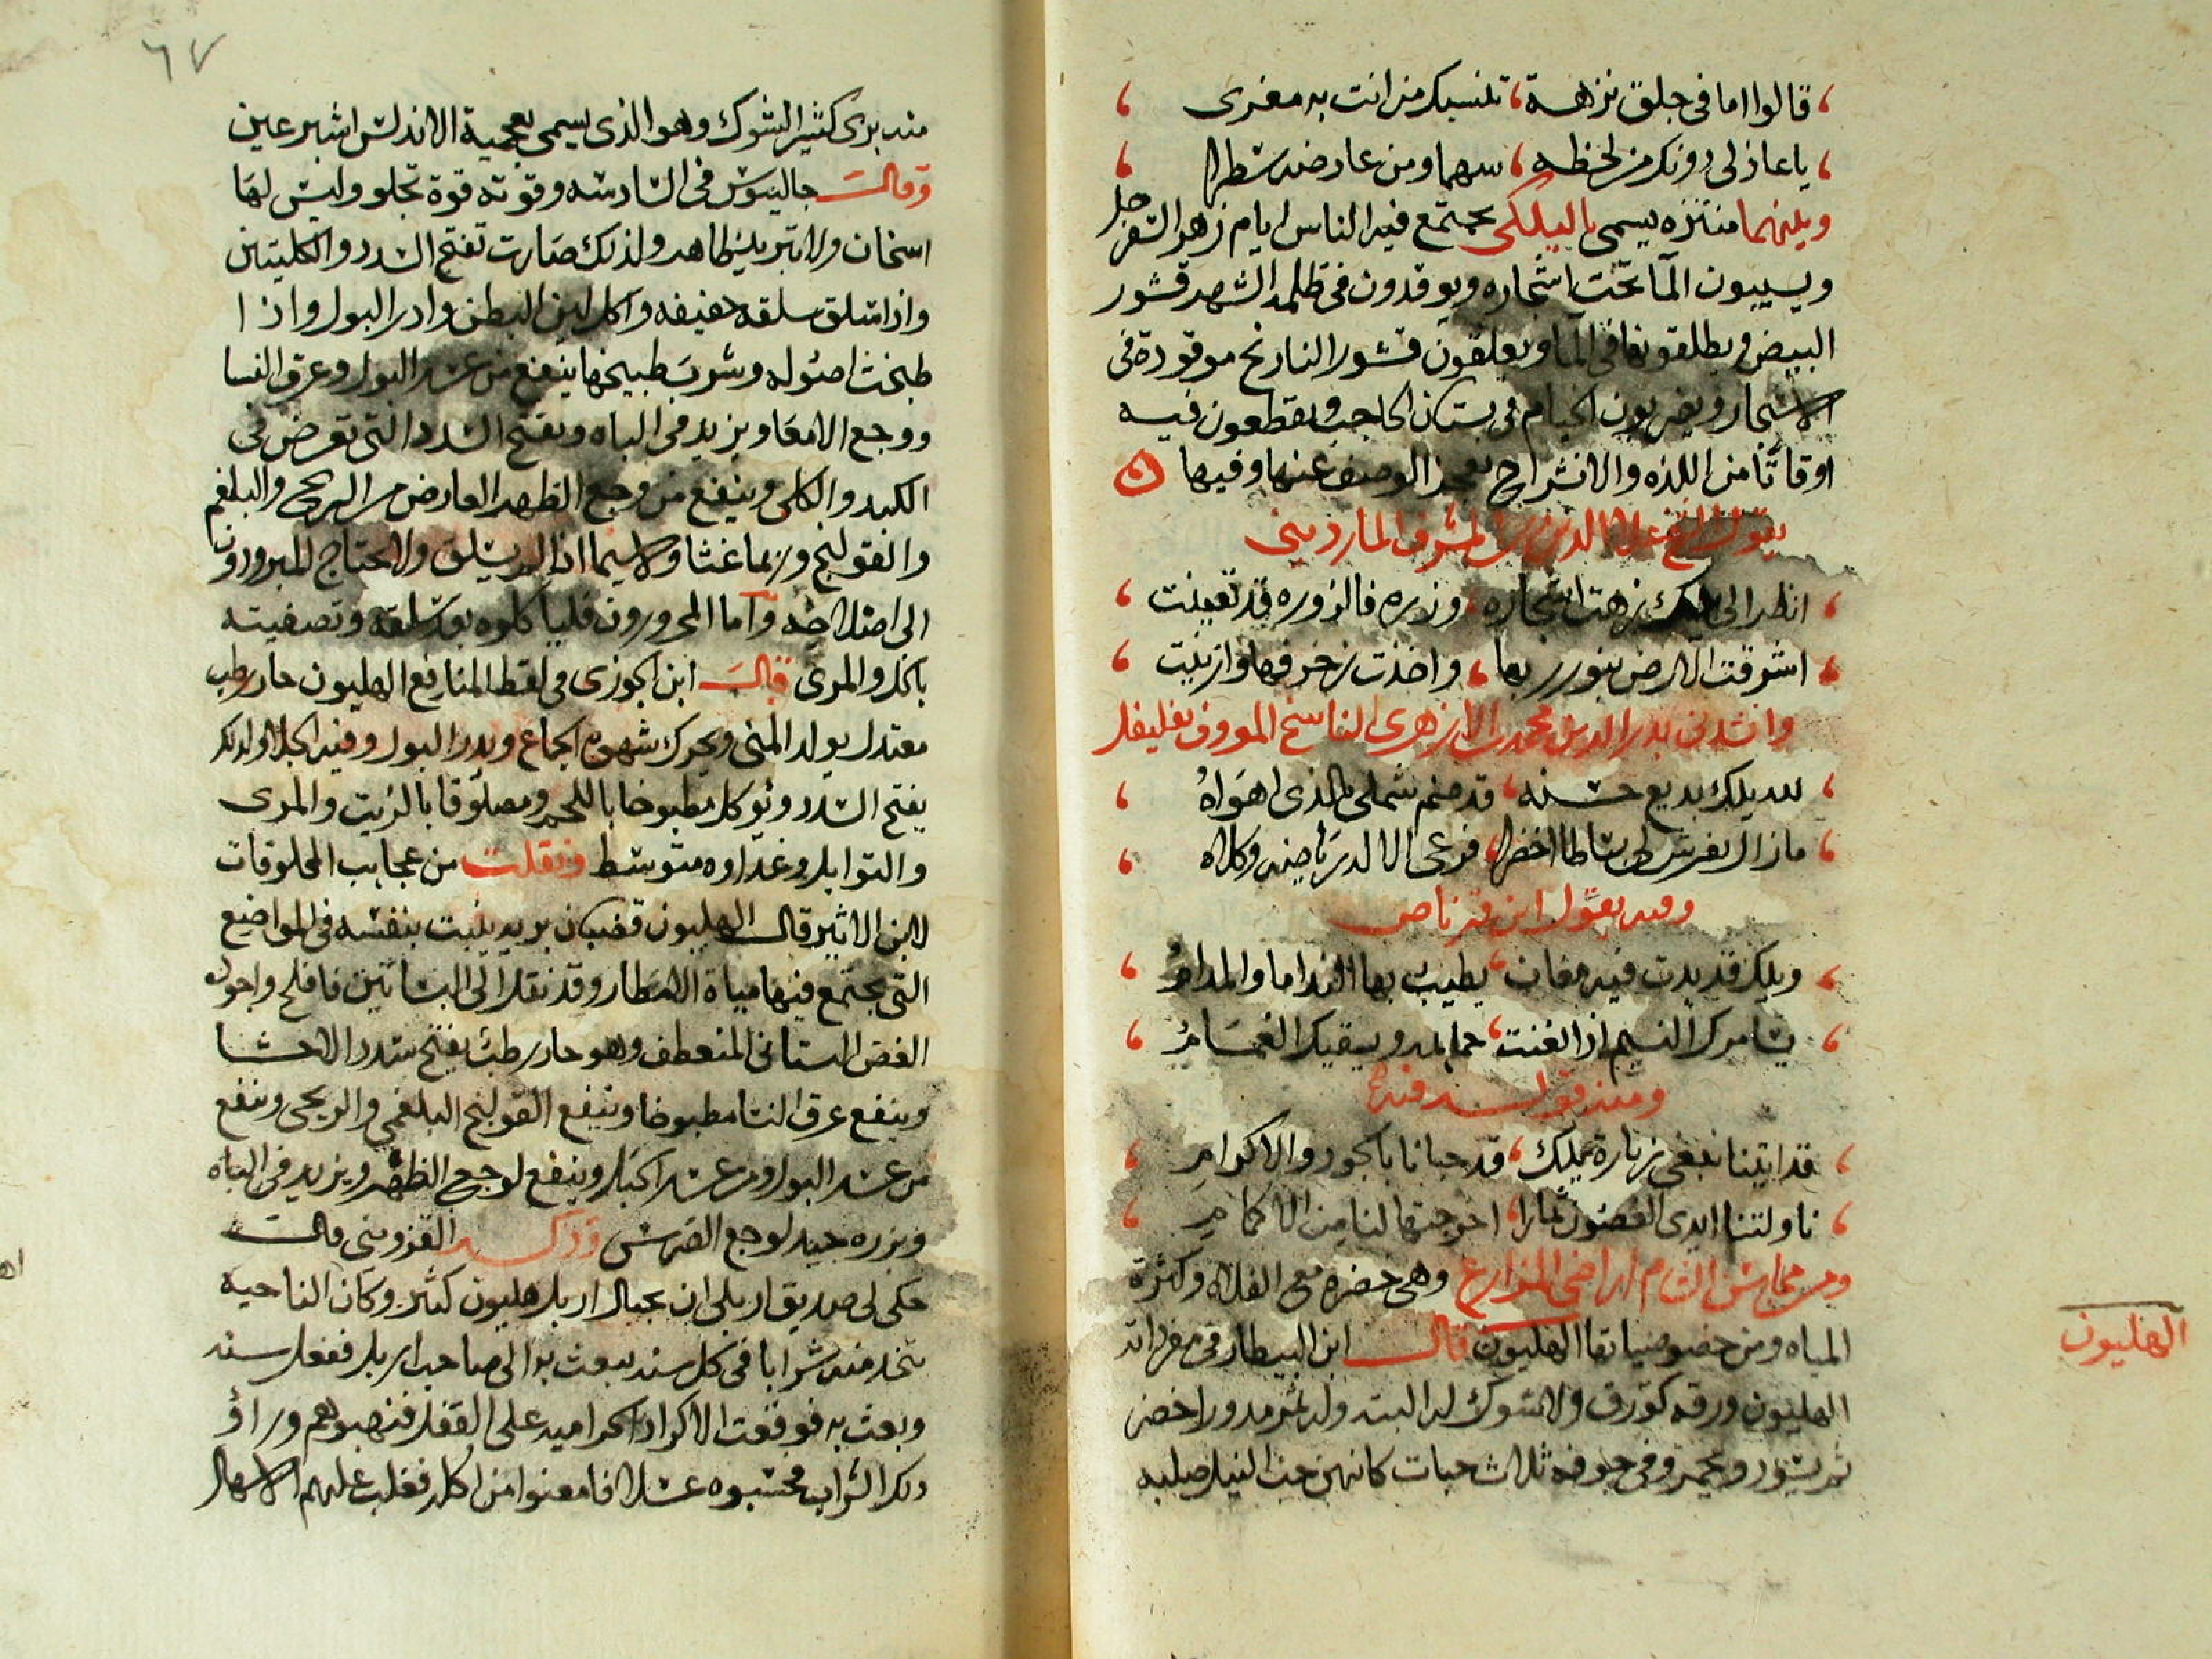 ، قالوا اما فى جلق نزهة ، تنسيك من انت به مغرى ،
، يا عاذلى دونك من لحظه ، سهما ومن عارضه سطرا ،
ويليهما منتزه يسمى باليلكى يجتمع فيه الناس ايام زهر السفرجل
ويسيبون الما تحت اشجاره ويوقدون فى ظلمه الشهر قشور
البيض ويطلقونها فى الما ويعلقون قشور النارنج موقودة فى
الاشجار ويضربون الخيام فى بستان الحاجب ويقطعون فيه
اوقاتا من اللذه والانشراح يعجز الوصف عنها وفيها
يقول الشيخ علا الدين بن المشرف الماردينى
، انظر الى اليلك زهت اشجاره ، وزره فالزوره قد تعينت ،
، اشرقت الارض بنور ربها ، واخذت زخرفها وازينت ،
وانشدنى بدر الدين محمد الازهرى الناسخ المعروف بفليفل
، لله يلك بديع حسنه ، قد ضم شملى بالذى اهواهُ ،
، مازال يفرش لى بساطا اخضرا ، فرعى الاله رياضه وكلاه ،
وفيه يقول ابن قرناص
، ويلك قد بدت فيه مغان ، يطيب بها النداما والمدامُ ،
، يسامرك النسيم اذا تغنت ، حمايمه ويسقيك الغمامُ ،
ومنه قوله فيها
، قد اتينا نبغى زيارة يلك ، قد حبانا بالجود والاكرامِ ،
، ناولتنا ايدى الغصون ثمارا ، اخرجتها لنا من الاكمامِ ،
ومن محاسن الشام اراضى المزارع وهى خضره مع الفلاه وكثرة
المياه ومن خصوصياتها الهليون قال ابن البيطار فى مفرداته
الهليون ورقه كورق ولا شوك له البته وله ثمر مدور اخضر
ثم يسود ويحمر وفى جوفه ثلاث حبات كانهن حب النيل صلبه
الهليون
٦٧
منه برى كثير الشوك وهو الذى يسمى بعجمية الاندلس اشبرعين
وقال جالينوس فى السادسه وقوته قوة تجلو وليس لها
اسخان ولا تبريد ظاهر ولذلك صارت تفتح السدد والكليتين
واذا سلق سلقه خفيفه واكل لين البطن وادر البول واذا
طبخت اصوله وشرب طبيخها ينفع من عسر البول وعرق النسا
ووجع الامعا ويزيد فى الباه ويفتح السدد التى تعرض فى
الكبد والكلى وينفع من وجع الظهر العارض من الريح والبلغم
والقولنج وربما غثا ولا سيما اذا لم يسلق ولا يحتاج المبرودون
الى اصلاحه واما المحرورون فليأكلوه بعد سلقه وتصفيته
بالخل والمرى قال ابن الجوزى فى لقط المنافع الهليون حار رطب
معتدل يولد المنى ويحرك شهوة الجماع ويدر البول وفيه الجلا ولذلك
يفتح السدد ويؤكل مطبوخا باللحم ومصلوقا بالزيت والمرى
والتوابل وغذاوه متوسط ونقلت من عجايب المخلوقات
لابن الاثير قال الهليون قضبان بريه ينبت بنفسه فى المواضع
التى يجتمع فيها مياة الامطار وقد نقل الى البساتين فافلح واجوده
الغض البستانى المنعطف وهو حار رطب يفتح سدد الاحشا
وينفع عرق النسا مطبوخا وينفع القولنج البلغمى والريحى وينفع
من عسر البول ومن عسر الحبل وينفع لوجع الظهر ويزيد فى الباه
وبزره جيد لوجع الضرس وذكر القزوينى قال
حكى لى صديق اربلى ان بجبال اربل هليون كثير وكان الناحيه
يتخذ منه شرابا فى كل سنه يبعث به الى صاحب اربل ففعل سنه
وبعث به فوقعت الاكراد الحراميه على القفل فنهبوهم وراؤ
ذلك الشراب فحسبوه عسلا فامعنوا من اكله فغلب عليهم الاسهال